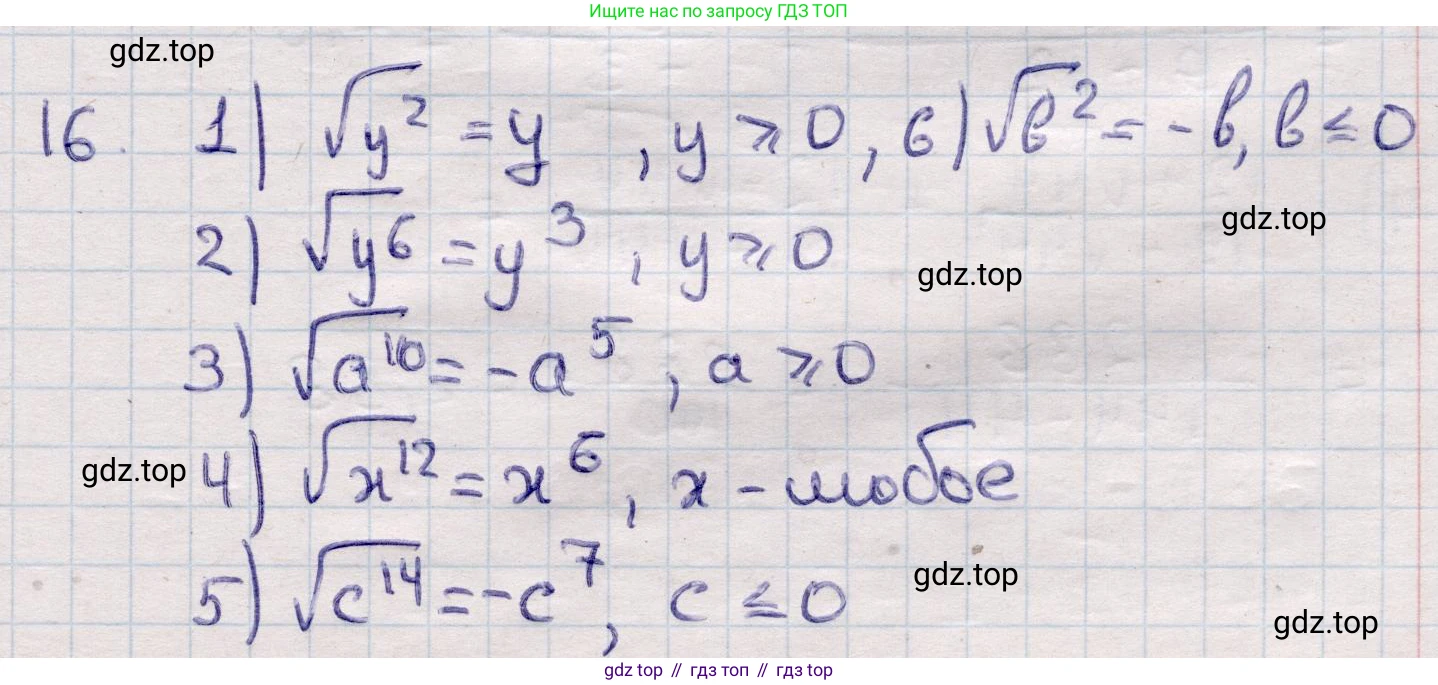 Ищите нас по запросу ГДЗ ТОП
gdz.top
16. 1) √y² = y , y ⩾ 0, 6) √b² = -b, b ≤ 0
gdz.top
2) √y⁶ = y³ , y ⩾ 0
gdz.top
3) √a¹⁰ = -a⁵ , a ⩾ 0
4) √x¹² = x⁶, x - любое
gdz.top
5) √c¹⁴ = -c⁷, c ≤ 0
gdz.top
gdz.top
gdz top // гдз топ // gdz top